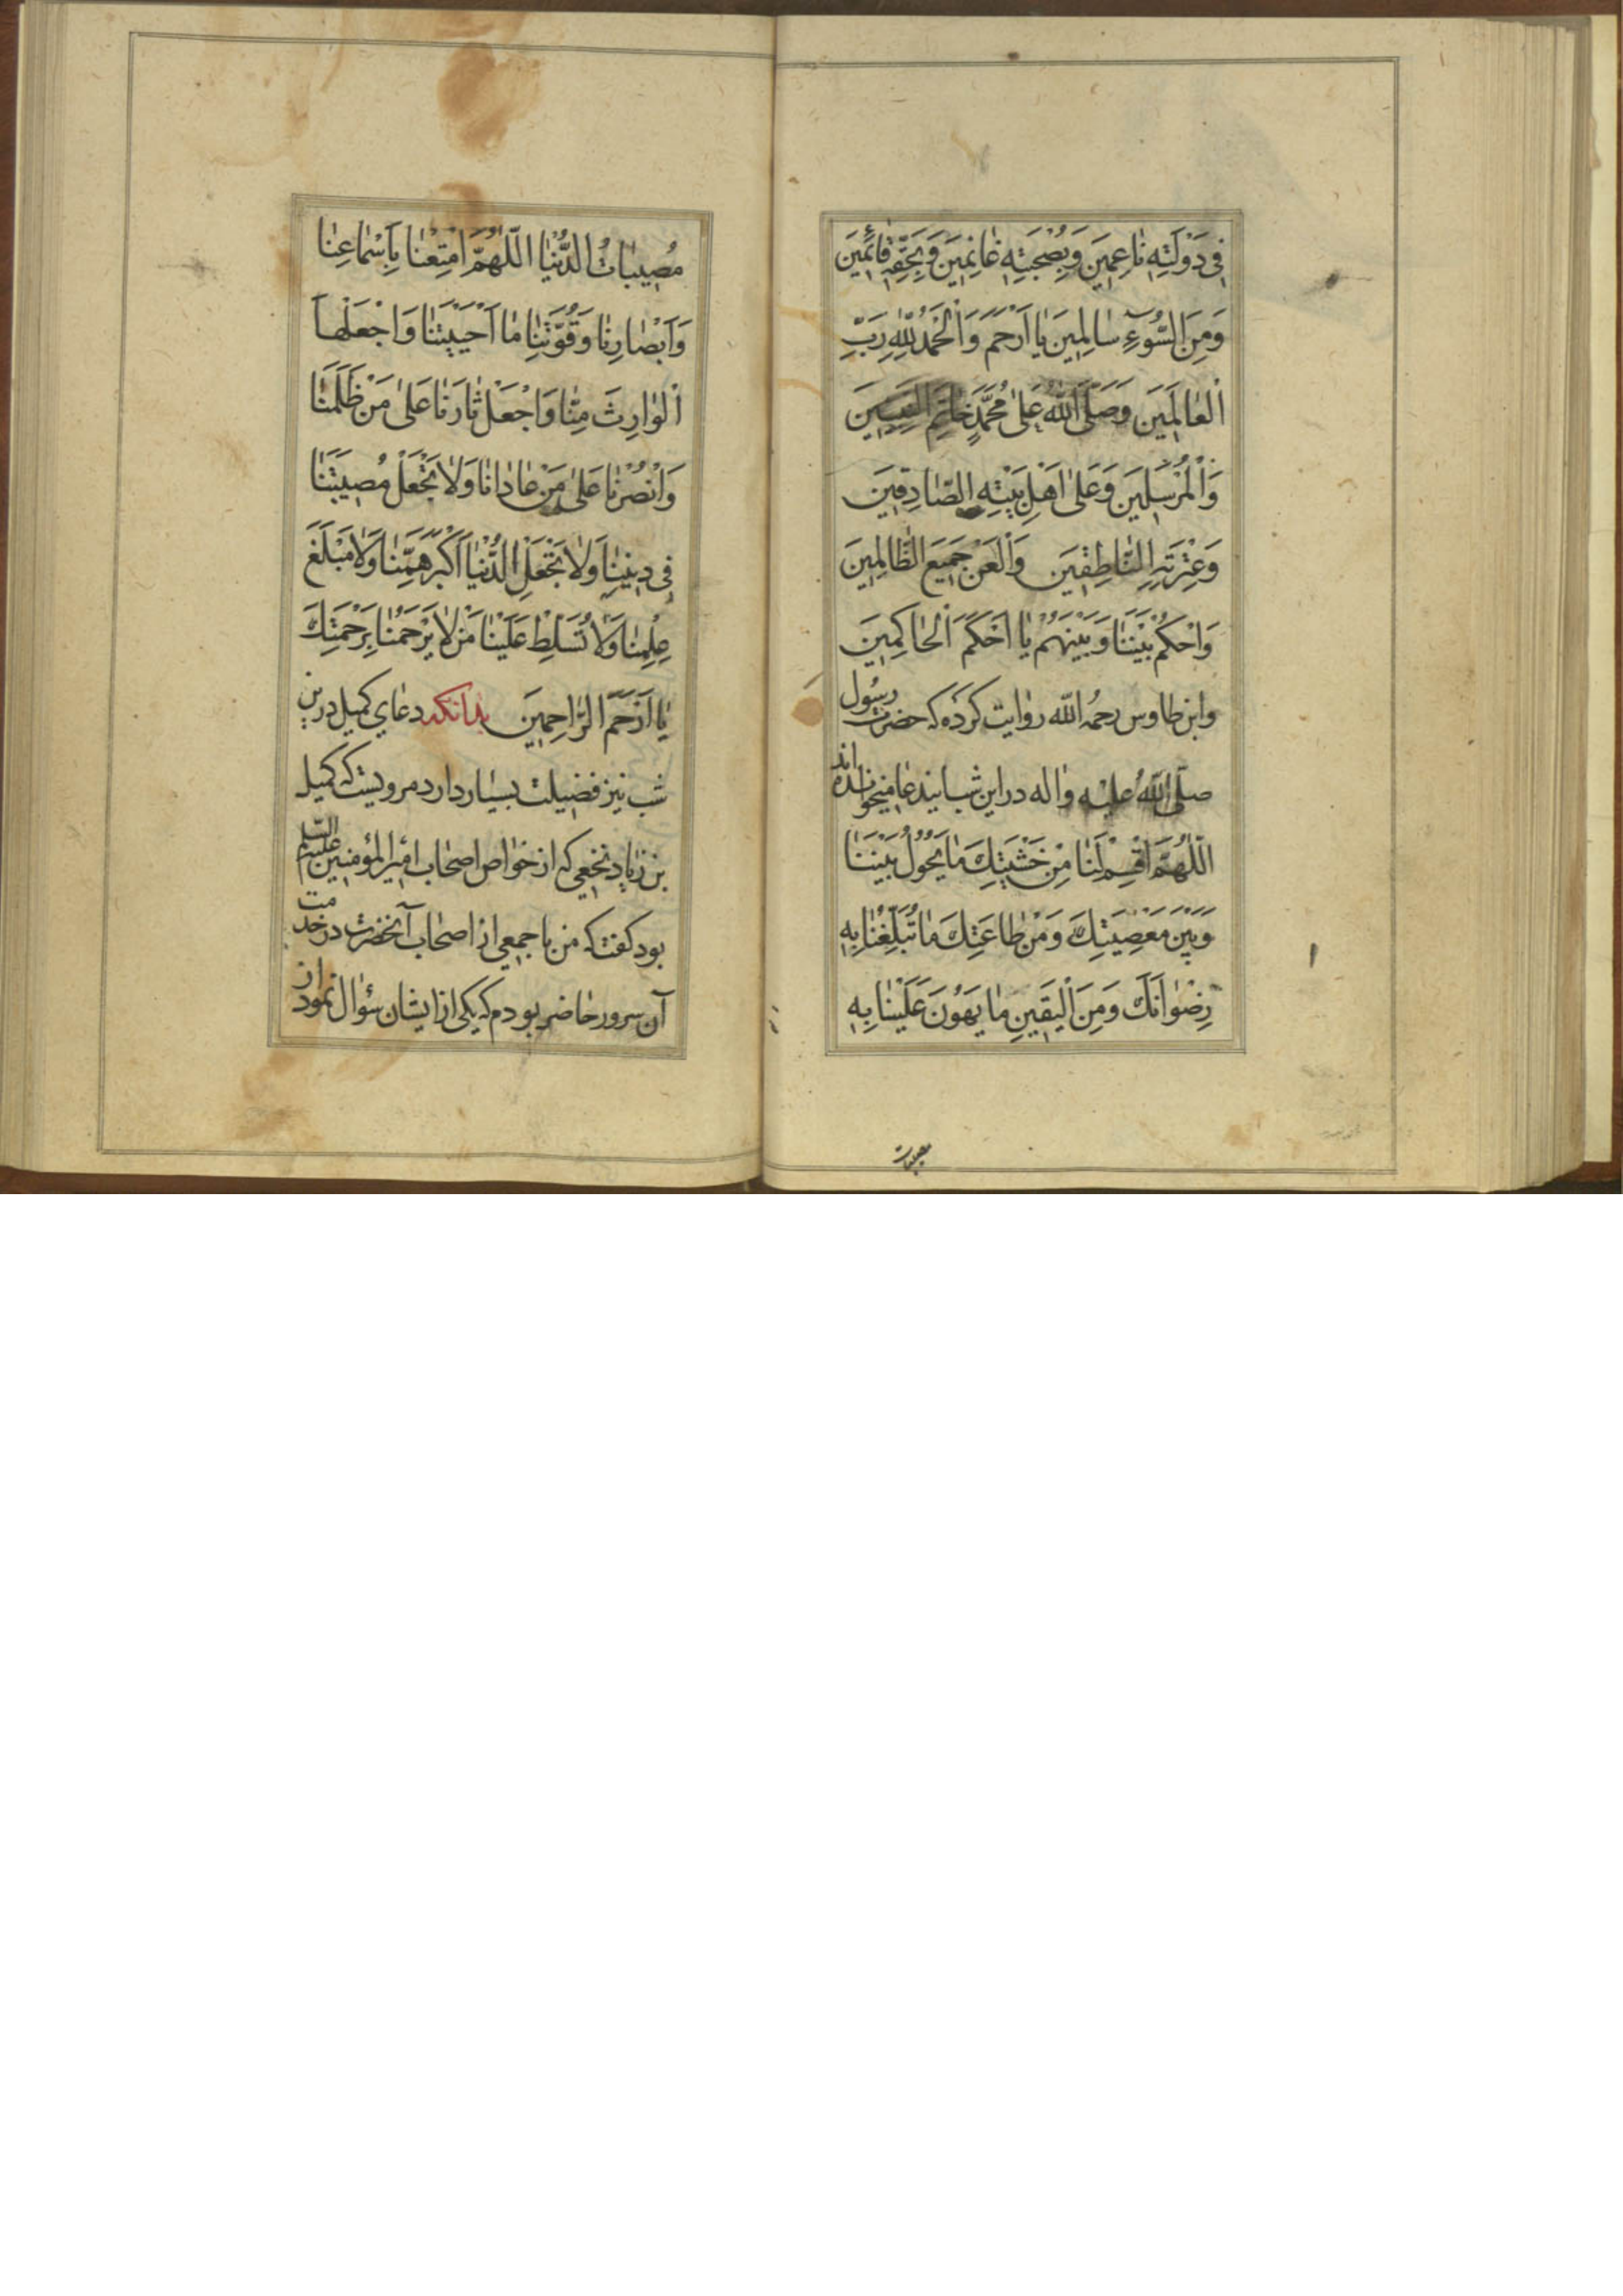 فِي دَوْلَتِهِ نَاعِمِينَ وَبِصُحْبَتِهِ غَانِمِينَ وَبِحَقِّهِ قَائِمِينَ
وَمِنَ السُّوءِ سَالِمِينَ يَا اَرْحَم وَالْحَمْدُ لِلّٰهِ رَبِّ
الْعَالَمِينَ وَصَلَّى اللّٰهُ عَلَى مُحَمَّدٍ خَاتَمِ النَّبِيِّينَ
وَالْمُرْسَلِينَ وَعَلَى اَهْلِ بَيْتِهِ الصَّادِقِينَ
وَعِتْرَتِهِ النَّاطِقِينَ وَالْعَنْ جَمِيعَ الظَّالِمِينَ
وَاحْكُمْ بَيْنَنَا وَبَيْنَهُمْ يَا اَحْكَمَ الْحَاكِمِينَ
وابن طاوس رحمُه الله روايت كرده كه حضرت رسُول
صلّى اللّٰهُ عليه واله در اين شب اينداعا ميخوانده اند
اَللّٰهُمَّ اقْسِمْ لَنَا مِنْ خَشْيَتِكَ مَا يَحُولُ بَيْنَنَا
وَبَيْنَ مَعْصِيَتِكَ وَمِنْ طَاعَتِكَ مَا تُبَلِّغُنَا بِهِ
رِضْوَانَكَ وَمِنَ الْيَقِينِ مَا يَهُونُ عَلَيْنَا بِهِ
مصيبات
مُصِيبَاتُ الدُّنْيَا اَللّٰهُمَّ اَمْتِعْنَا بِاَسْمَاعِنَا
وَاَبْصَارِنَا وَقُوَّتِنَا مَا اَحْيَيْتَنَا وَاجْعَلْهَا
الْوَارِثَ مِنَّا وَاجْعَلْ ثَارَنَا عَلَى مَنْ ظَلَمَنَا
وَانْصُرْنَا عَلَى مَنْ عَادَانَا وَلَا تَجْعَلْ مُصِيبَتَنَا
فِي دِينِنَا وَلَا تَجْعَلِ الدُّنْيَا اَكْبَرَ هَمِّنَا وَلَا مَبْلَغَ
عِلْمِنَا وَلَا تُسَلِّطْ عَلَيْنَا مَنْ لَا يَرْحَمُنَا بِرَحْمَتِكَ
يَا اَرْحَمَ الرَّاحِمِينَ بدانكه دعاي كميل درين
شب نيز فضيلت بسيار دارد مرويست كه كميل
بن زياد نخعي كه از خواص اصحاب امير المؤمنين عليه السلم
بود كفت كه من با جمعي از اصحاب آنحضرت در خدمت
آن سرور حاضر بودم كه يكي از ايشان سؤال نمود از